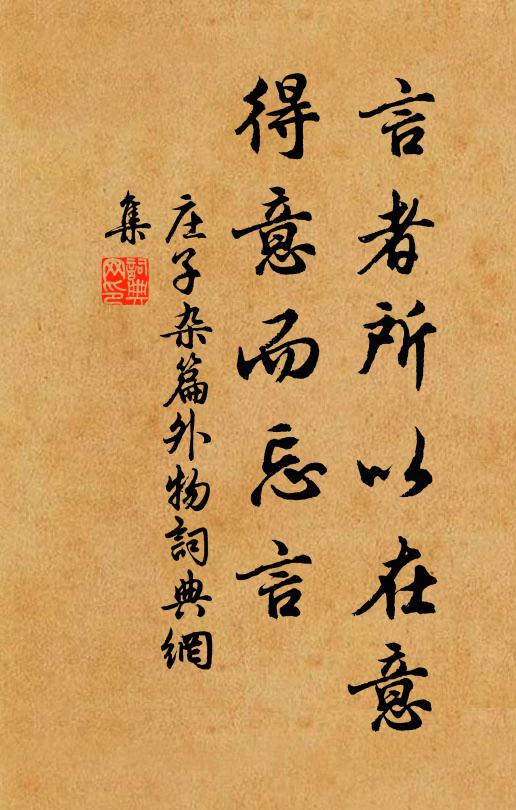 言者所以在意
得意而忘言
庄子杂篇外物詞典網
集
詞典
网印